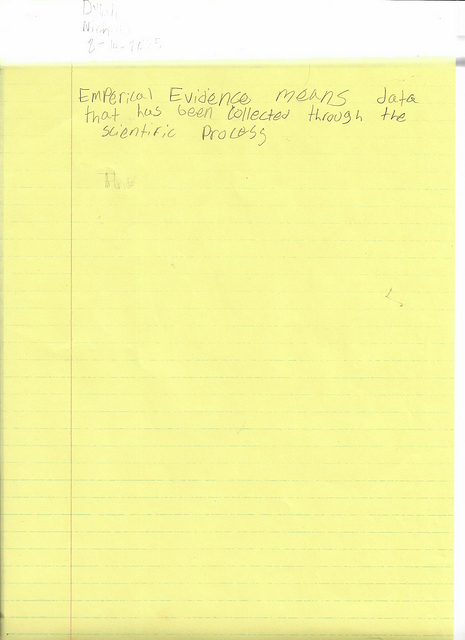 Emperical Evidence means data
that has been collected through the
scientific Process